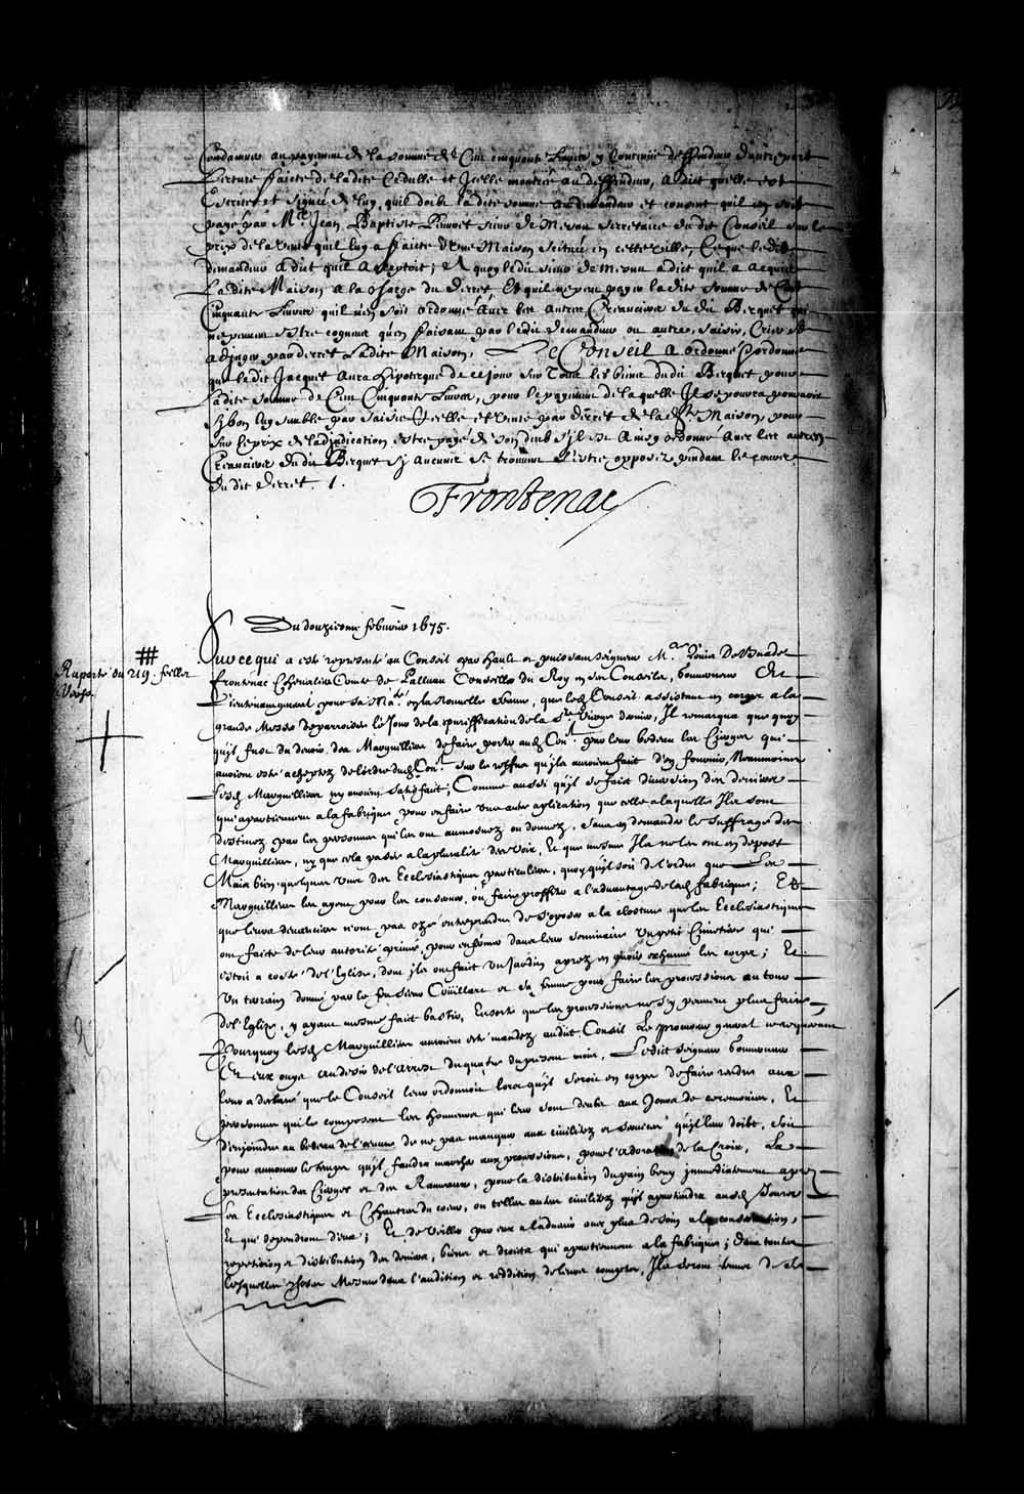 Condamner au payement de la somme de Cent cinquante livres y contenüe deffendeur d'autre part
Lecture faicte de ladite Cedulle et Icelle monstrée au deffendeur, a dict quelle est
Escritte et signée de luy, quil doibt ladite somme au demandeur et consent quil en soit
payé par Me Jean Baptiste Peuvret sieur de Mesnu secretaire dudit Conseil sur le
prix de la vente quil luy a faicte d'une Maison scituée en cette ville, Ce que ledit
demandeur a dict quil acceptoit; A quoy ledit sieur de mesnu a dict quil a acquis
Ladite Maison a la charge du decret Et quil ne peut payer ladite somme de Cent
Cinquante livres quil n'en soit ordonné avec les autres Creanciers du dit Becquet qui
ne peuvent estre cogneus qu'en faisant par ledit demandeur ou autres, saisir, Crier et
adjuger par decret ladite Maison, Le Conseil a ordonné et ordonne
que ledit Jacquet aura hipotecque de ce jour sur Tous les biens dudit Becquet pour
ladite somme de Cent Cinquante livres, pour le payement de laquelle Il se pourra pourvoir
sy bon luy semble par saisie Icelle et vente par decret de ladte Maison, pour
sur le prix de l'adjudication estre payé de son deub s'il est Ainsy ordonné avec les autres
Creanciers dudit Becquet sy aucuns se trouvent s'estre opposez pendant le cours
du dit decret. /.
Frontenac
Du douziesme febvrier 1675.
Raporté du 219. feillet
Verso
Sur ce qui a esté representé au Conseil par hault et puissant seigneur Mre Louis De Buade
frontenac Chevalier Comte de Palluau Conseiller du Roy en ses Conseils, Gouverneur Et
Lieutenant general pour sa Maté en la Nouvelle france, que led Conseil assistant en corps a la
grande Messe de parroisse le jour de la purification de la Ste Vierge dernier, Il remarqua que quoy
qu'il fust du devoir des Marguilliers de faire porter aud Conl par leur bedeau les Cierges qui
avoient esté acheptez de l'ordre dud Conl sur le reffus qu'ils avoient fait d'en fournir, Neanmoins
Lesd Marguilliers n'y avoient satisfait; Comme aussi qu'il se faict diversion des deniers
qui apartiennent a la fabrique, pour en faire une autre aplication que celle a laquelle Ils sont
destinez par les personnes qui les ont aumosnez ou donnez, sans en demander le suffrage des
Marguilliers, ny que cela passe a la pluralité des voix, Et que mesme Ils ne les ont en depost
Mais bien quelques uns des Ecclesiastiques particuliers, quoy qu'il soit de l'ordre que Les
Marguilliers les ayent pour les conserver, ou faire proffiter a l'advantage de lad fabrique; Et
que leurs devanciers n'ont pas ozé entreprendre de s'oposer a la closture que les Ecclesiastiques
ont faicte de leur autorité privée, pour enfermer dans leur seminaire un petit Cimetiere qui
estoit a costé de l'Eglise, dont ils ont fait un Jardin aprez en avoir exhumé les corps; Et
Un terrain donné par le feu sieur Coüillart et sa femme pour faire les processions au tour
de l'Eglize, y ayant mesme fait bastir, Ensorte que les processions ne s'y peuvent plus faire,
Pourquoy lesd Marguilliers auroient esté mandez audit Conseil Le procureur general ce requerant
Et eux ouys au desir de l'arrest du quatre du present mois, Ledict seigneur Gouverneur
leur a declaré que le Conseil leur ordonnoit lors qu'il seroit en corps de faire rendre aux
personnes qui le composent les honneurs qui leur sont deubs aux Jours de ceremonies, Et
d'enjoindre au bedeau de l'œuvre de ne pas manquer aux civilitez et devoirs qu'il leur doibt, soit
pour annoncer le temps qu'il faudra marcher aux processions, pour l'adoration de la Croix, La
presentation des Cierges et des Rameaux, pour la distribution du pain beny immediatement aprez
Les Ecclesiastiques et Chantres du cœur, ou telles autres civilitez qu'il apartiendra ausd Jours
Et qui dependront d'eux; Et de veiller par eux a l'advenir avec plus de soin a la conservation,
repetition et distribution des deniers, biens et droits qui apartiennent a la fabrique; dans toutes
lesquelles choses Mesme dans l'audition et reddition de leurs comptes, Ils seront tenus de se